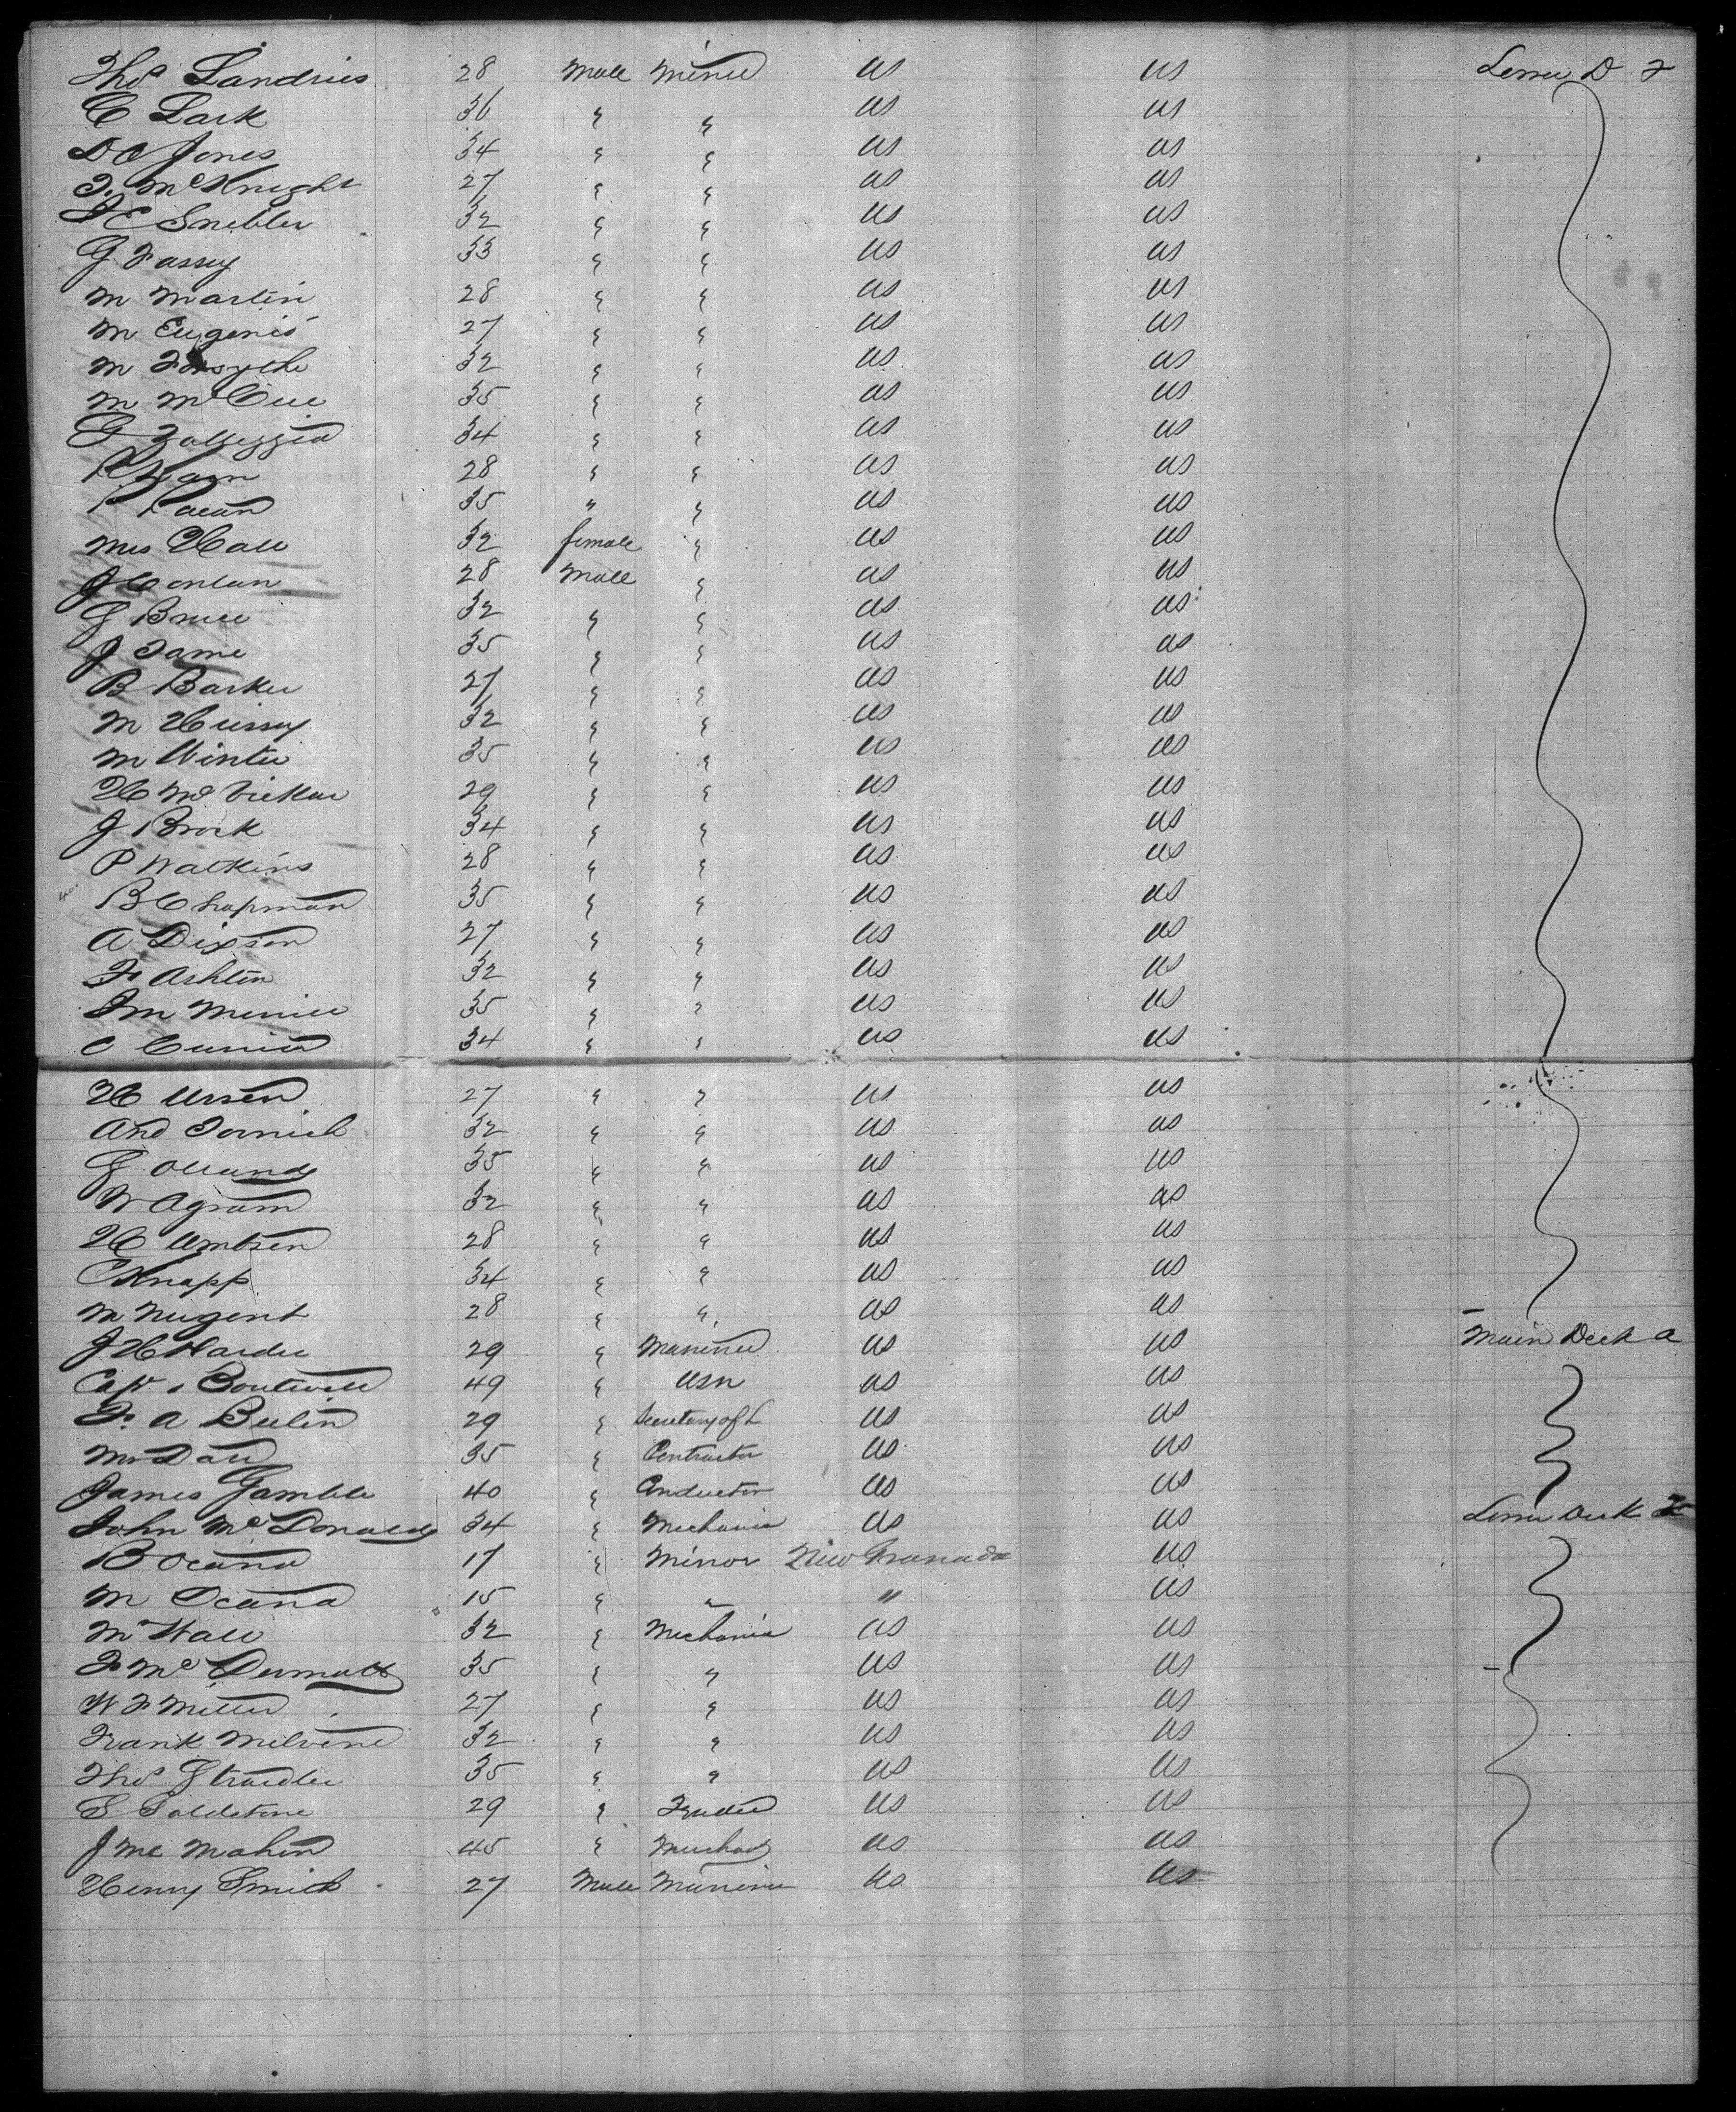 Thos Landries 28 Male Miner US US Lower D F
C Lark 36 " " US US
D C Jones 34 " " US US
F. McKnight 27 " " US US
J E Snebler 32 " " US US
G Fassey 33 " " US US
M Martin 28 " " US US
M Eugenis 27 " " US US
M Forsythe 32 " " US US
M McCue 35 " " US US
G 34 " " US US
28 " " US US
P 35 " " US US
Mrs Hall 32 female " US US
J Conlan 28 Male " US US
G Bruce 32 " " US US
J Fame 35 " " US US
B Barker 27 " " US US
M Hussey 32 " " US US
M Winter 35 " " US US
H McVickar 29 " " US US
J Brock 34 " " US US
P Watkins 28 " " US US
B Chapman 35 " " US US
A Dixson 27 " " US US
F Ashton 32 " " US US
35 " " US US
C 34 " " US US
H 27 " " US US
And 32 " " US US
G 35 " " US US
W Agram 32 " " US US
H Umbsen 28 " " US US
C Knapp 34 " " US US
M Nugent 28 " " US US
J H Hardie 29 " Mariner US US Main Deck a
Capt. Boutwell 49 " USN US US
F. A Beelin 29 " Secretary of L US US
Mr Dall 35 " Contractor US US
James Gamble 40 " Conductor US US
John McDonald 34 " Mechanic US US Lower Deck F
B Ocana 17 " Minor New Granada US
M Ocana 15 " " " US
M Hall 32 " Mechanic US US
F McDermott 35 " " US US
W F Miller 27 " " US US
Frank Melvine 32 " " US US
Thos 35 " " US US
S Goldstone 29 " Trader US US
J McMahon 45 " Merchant US US
Henry Smith 27 Male Mariner US US